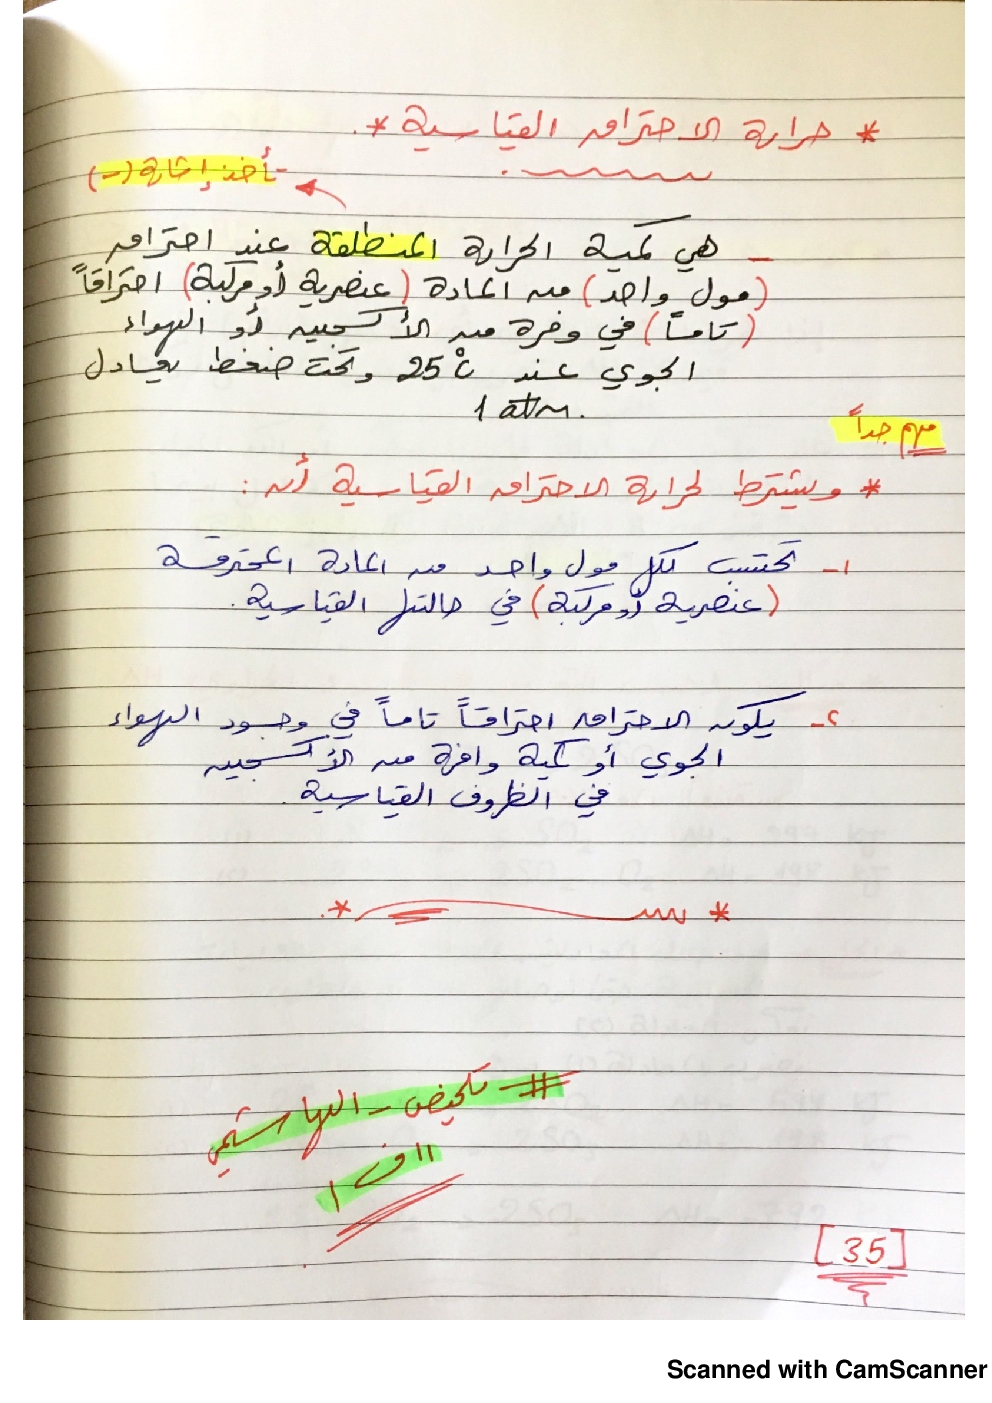 * حرارة الاحتراق القياسية *
تأخذ إشارة (-)
- هي كمية الحرارة المنطلقة عند احتراق
(مول واحد) من المادة (عنصرية أو مركبة) احتراقاً
(تاماً) في وفرة من الأكسجين أو الهواء
الجوي عند 25 °C وتحت ضغط يعادل
1 atm.
مهم جداً
* ويشترط لحرارة الاحتراق القياسية أن :
١- تحتسب لكل مول واحد من المادة المحترقة
(عنصرية أو مركبة) في حالتها القياسية.
٢- يكون الاحتراق احتراقاً تاماً في وجود الهواء
الجوي أو كمية وافرة من الأكسجين
في الظروف القياسية.
# تلخيص - الهاشمي
١١ ف ١
[35]
Scanned with CamScanner